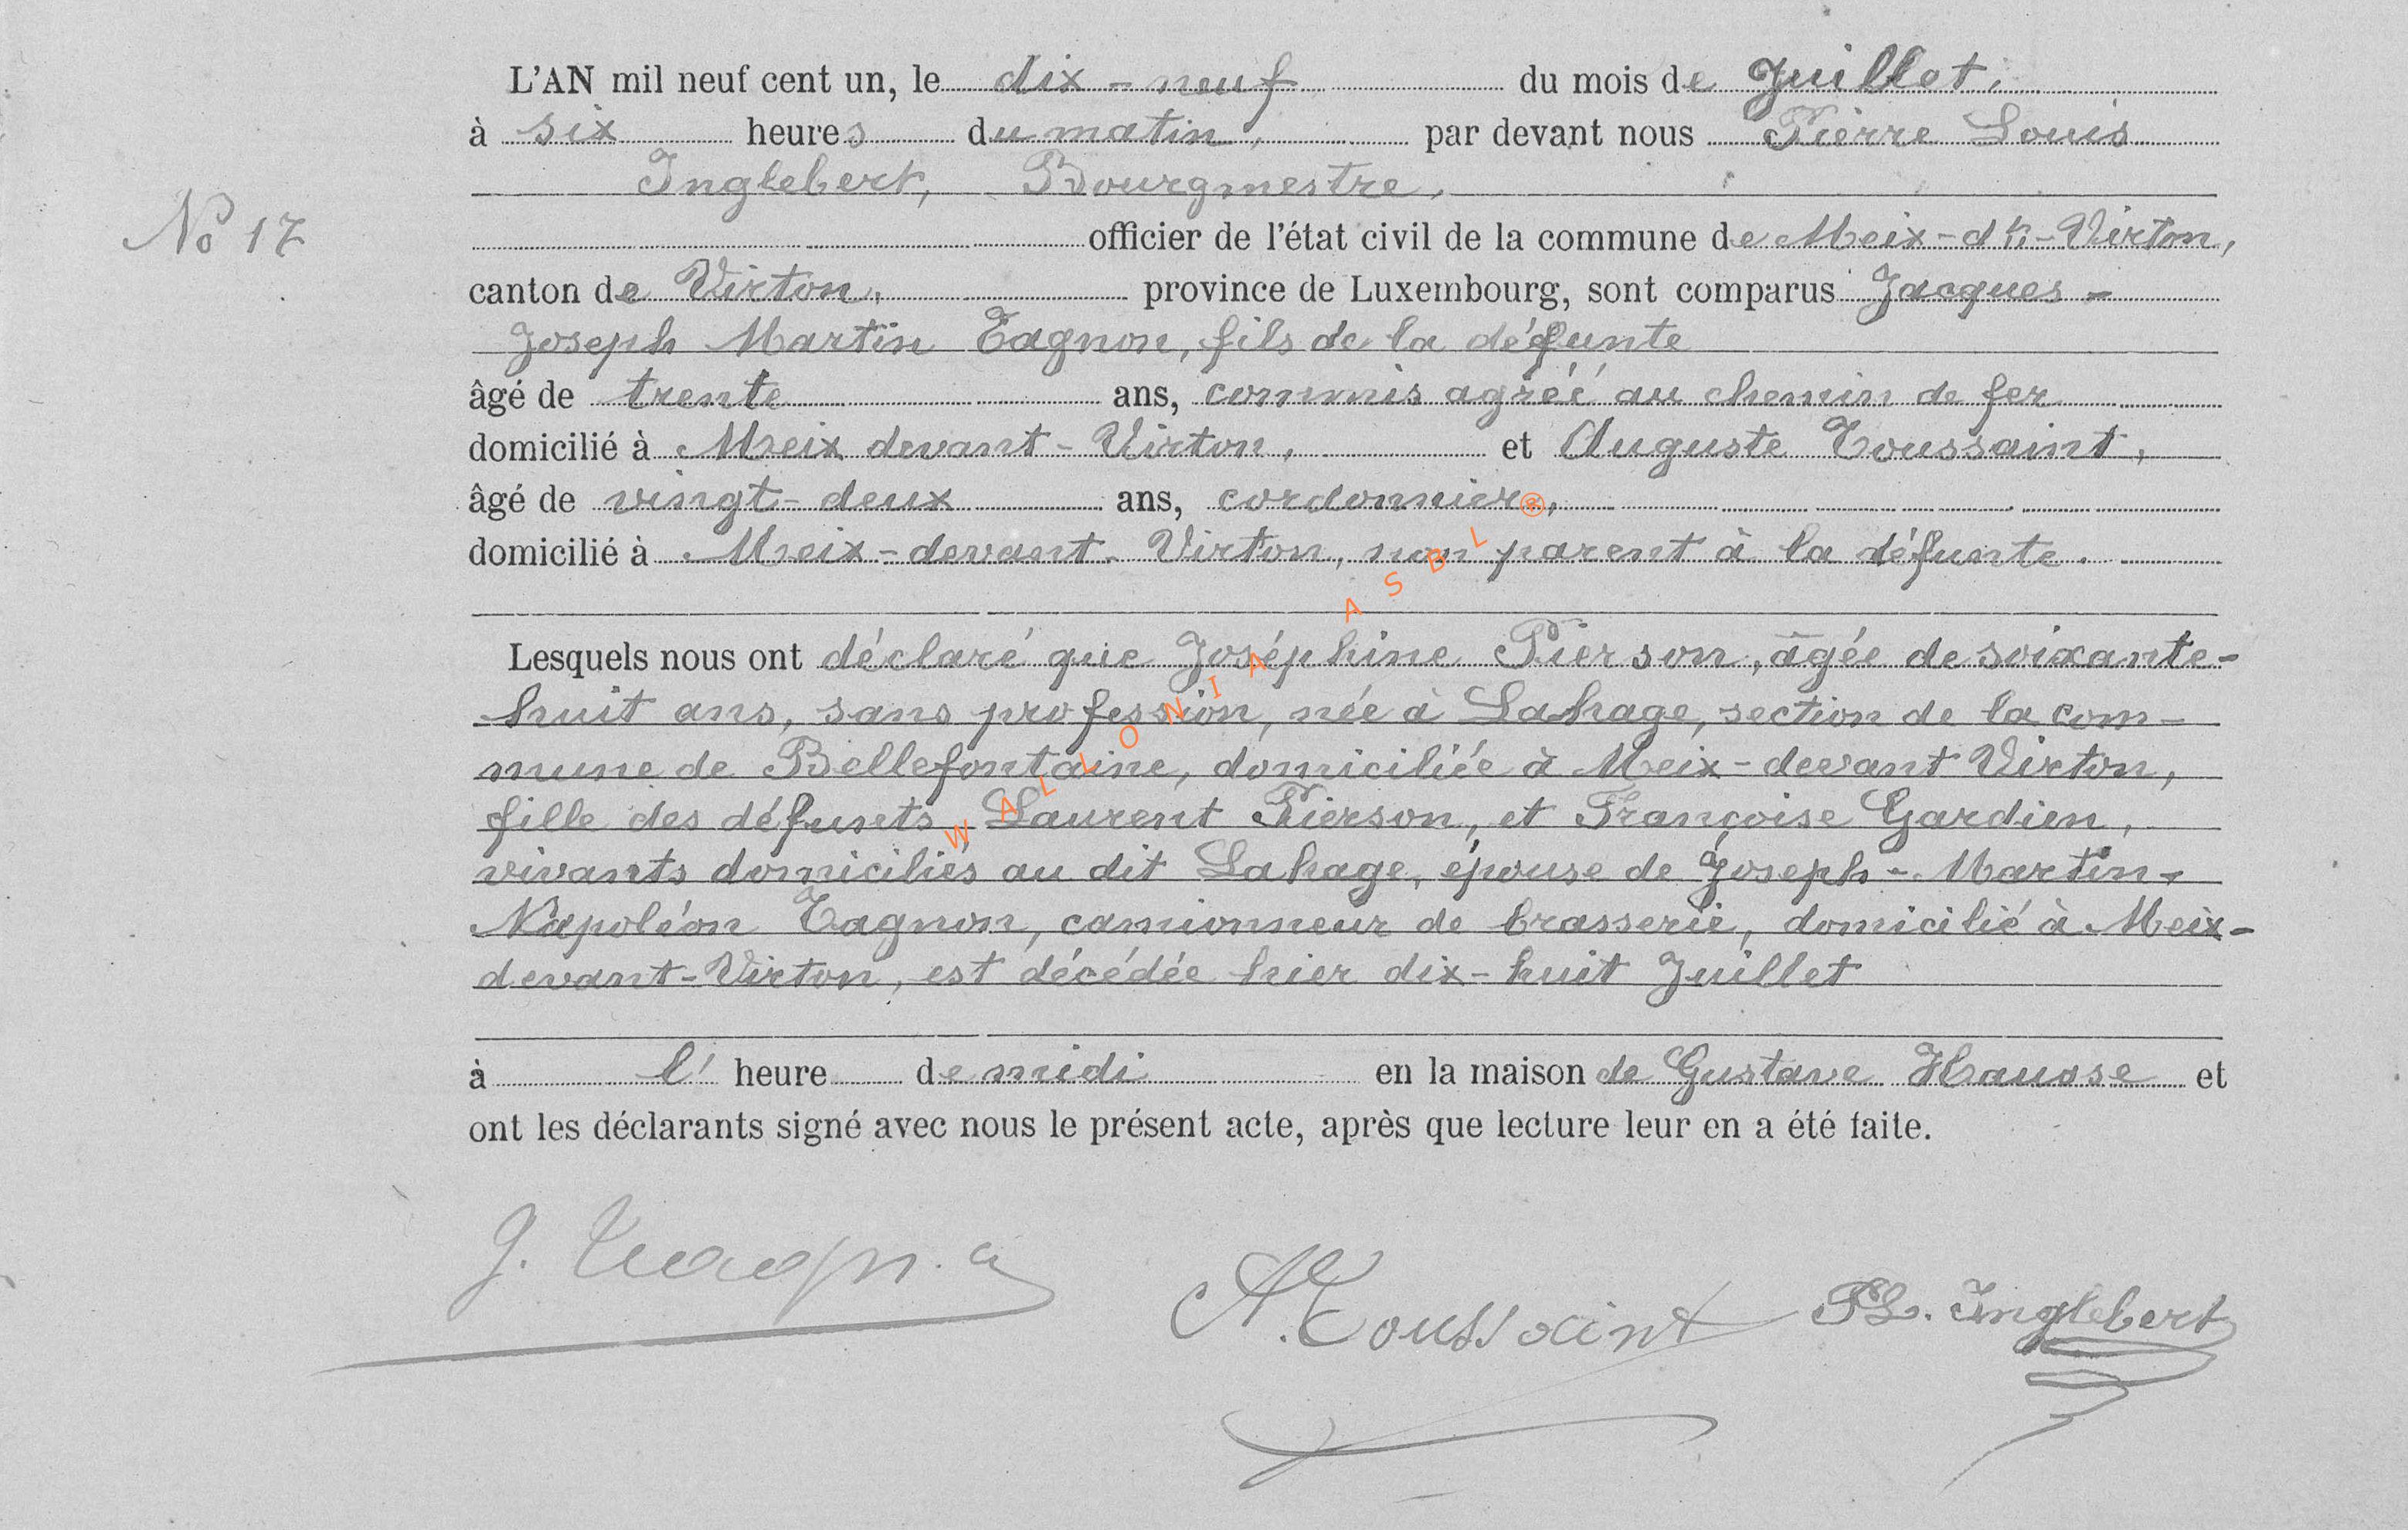 L'AN mil neuf cent un, le dix-neuf du mois de Juillet,
à six heures du matin, par devant nous Pierre Louis
Inglebert, Bourgmestre,
No 17
officier de l'état civil de la commune de Meix-dt-Virton,
canton de Virton, province de Luxembourg, sont comparus Jacques-
Joseph Martin Tagnon, fils de la défunte
âgé de trente ans, commis agréé au chemin de fer
domicilié à Meix devant-Virton, et Auguste Toussaint,
âgé de vingt-deux ans, cordonnier,
domicilié à Meix-devant-Virton, non parent à la défunte.
Lesquels nous ont déclaré que Joséphine Pierson, âgée de soixante-
huit ans, sans profession, née à Lahage, section de la com-
mune de Bellefontaine, domiciliée à Meix-devant Virton,
fille des défunts Laurent Pierson, et Françoise Gardien,
vivants domiciliés au dit Lahage, épouse de Joseph-Martin-
Napoléon Tagnon, camionneur de brasserie, domicilié à Meix-
devant-Virton, est décédée hier dix-huit Juillet
à l'heure de midi en la maison de Gustave Hausse et
ont les déclarants signé avec nous le présent acte, après que lecture leur en a été faite.
J.
A. Toussaint PL. Inglebert
WALLONIA ASBL ®